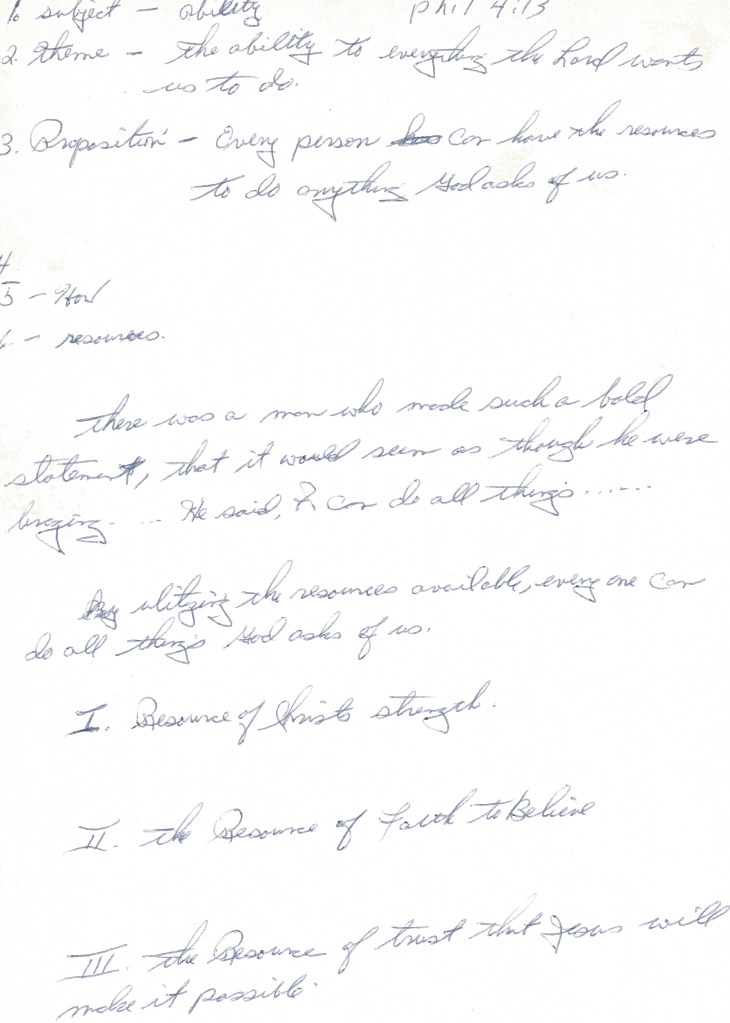 1. subject – ability Phil 4:13
2. theme – the ability to everything the Lord wants
us to do.
3. Proposition – Every person has can have the resources
to do anything God asks of us.
4
5 – How
6 – resources.
there was a man who made such a bold
statement, that it would seem as though he were
braging.... He said, I can do all things......
By utilizing the resources available, every one can
do all things God asks of us.
I. Resource of Christs strength.
II. the Resource of Faith to Believe
III. the Resource of trust that Jesus will
make it possible.